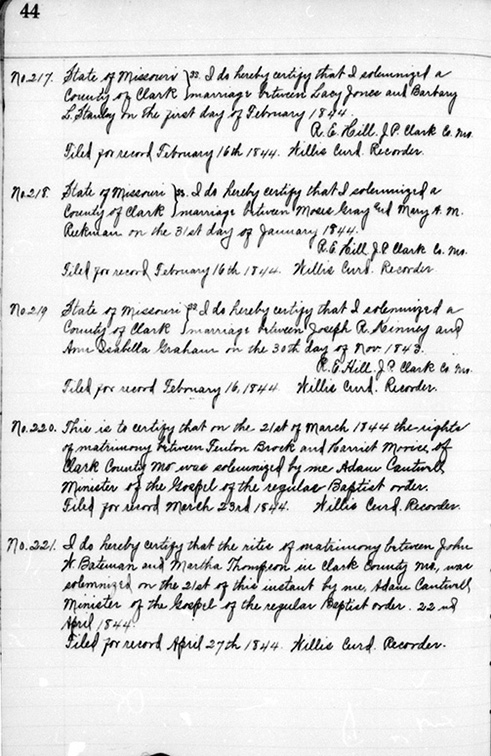 44
No.217. State of Missouri } ss. I do hereby certify that I solemnized a
County of Clark } marriage between Lacy Jones and Barbary
L. Stanley on the first day of February 1844.
R. E. Hill. J.P. Clark Co. Mo.
Filed for record February 16th 1844. Willis Curd. Recorder.
No.218. State of Missouri } ss. I do hereby certify that I solemnized a
County of Clark } marriage between Moses Gray and Mary A. M.
on the 31st day of January 1844.
R. E. Hill J.P. Clark Co. Mo.
Filed for record February 16th 1844. Willis Curd. Recorder.
No.219 State of Missouri } ss I do hereby certify that I solemnized a
County of Clark } marriage between Joseph R. Kinney and
Ann Isabella Graham on the 30th day of Nov. 1843.
R. E. Hill. J.P. Clark Co. Mo.
Filed for record February 16, 1844 Willis Curd. Recorder.
No.220. This is to certify that on the 21st of March 1844 the rights
of matrimony between Fenton Brock and Harriet of
Clark County Mo. was solemnized by me Adam Cantwell
Minister of the Gospel of the regular Baptist order.
Filed for record March 23rd 1844. Willis Curd. Recorder.
No.221. I do hereby certify that the rites of matrimony between John
W. Bateman and Martha Thompson in Clark County Mo, was
solemnized on the 21st of this instant by me, Adam Cantwell
Minister of the Gospel of the regular Baptist order. 22nd
April 1844.
Filed for record April 27th 1844. Willis Curd. Recorder.